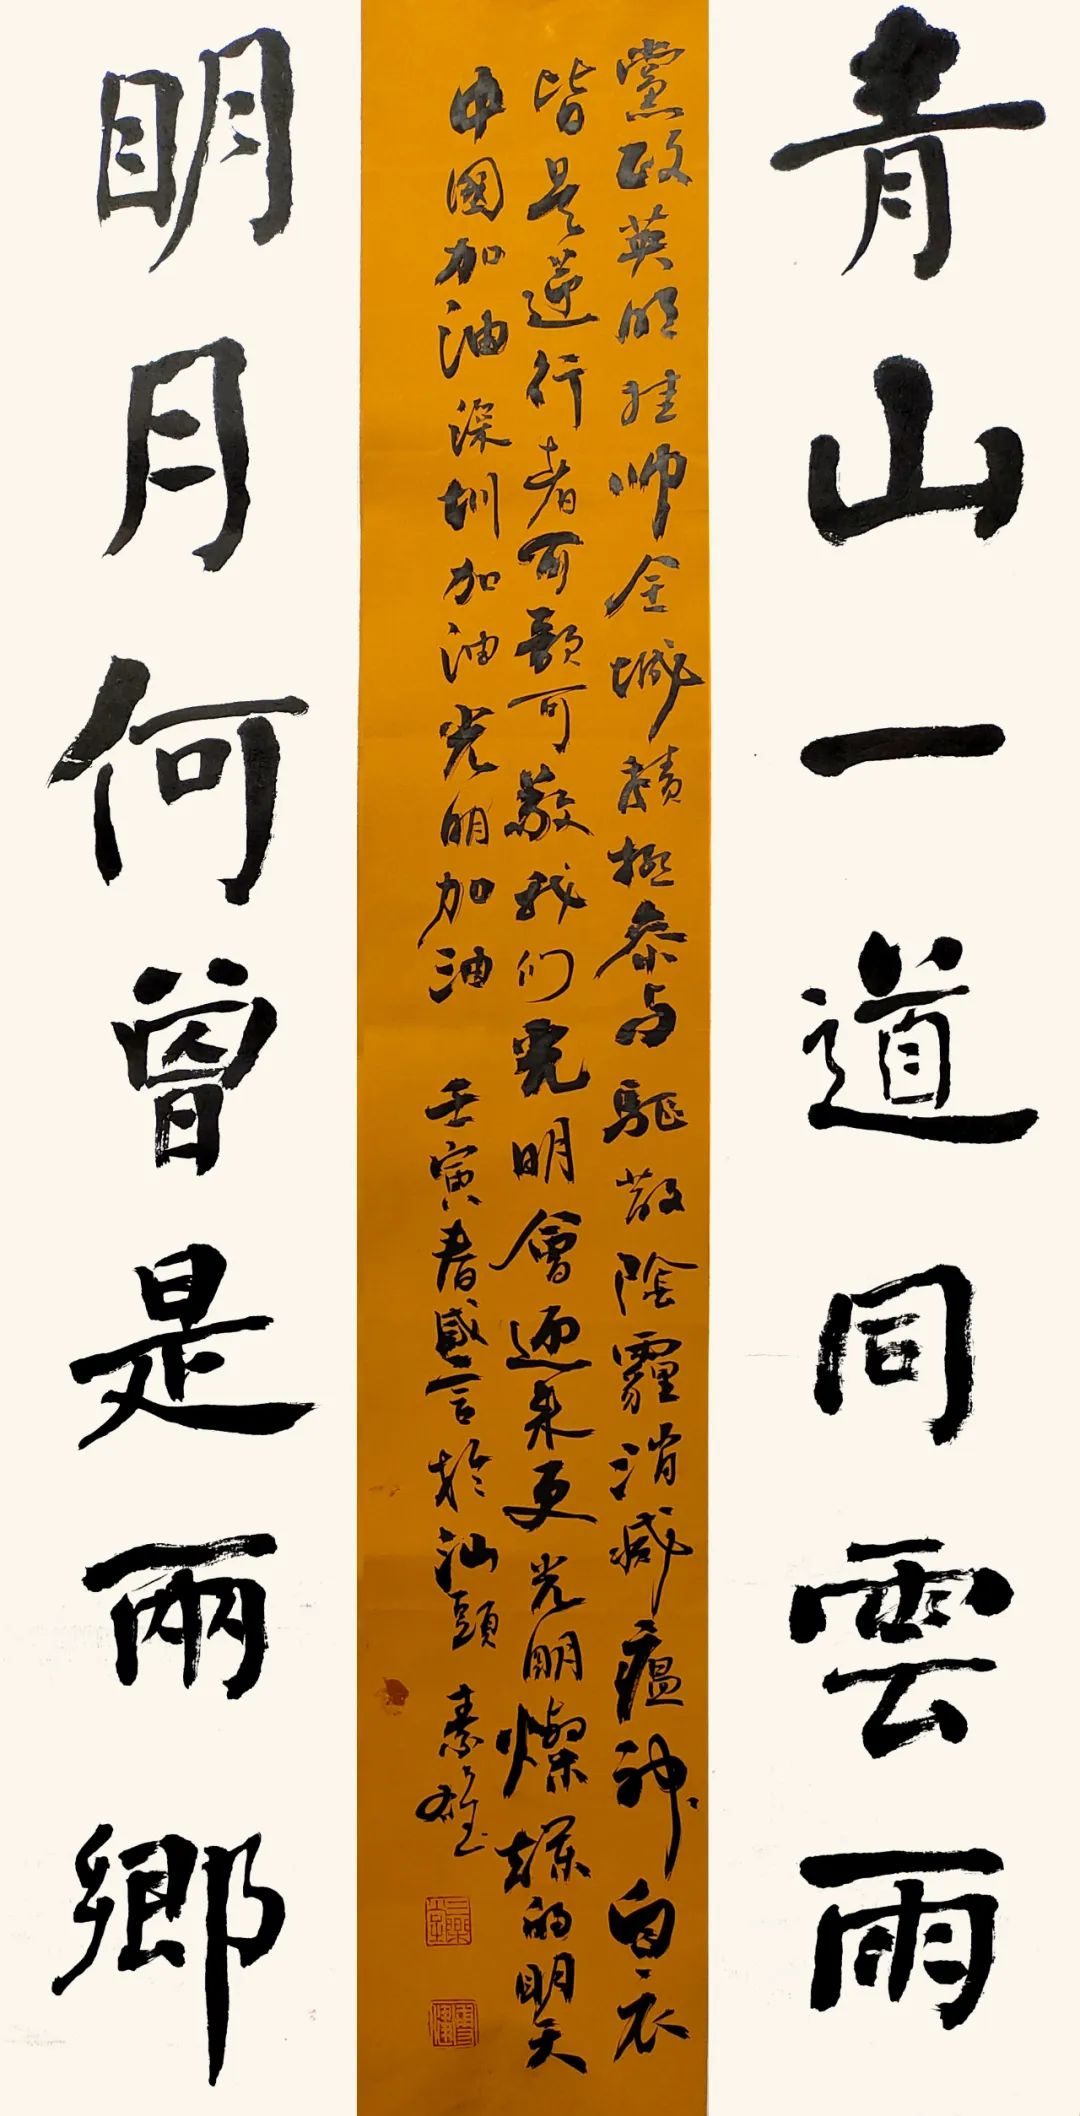 青山一道同雲雨
黨政英明挂帅全城積極参与驱散陰霾消滅瘟神白衣
皆是逆行者可歌可敬我们光明會迎来更光明燦爛的明天
中國加油深圳加油光明加油 壬寅春感言於汕頭 素雄
明月何曾是兩鄉